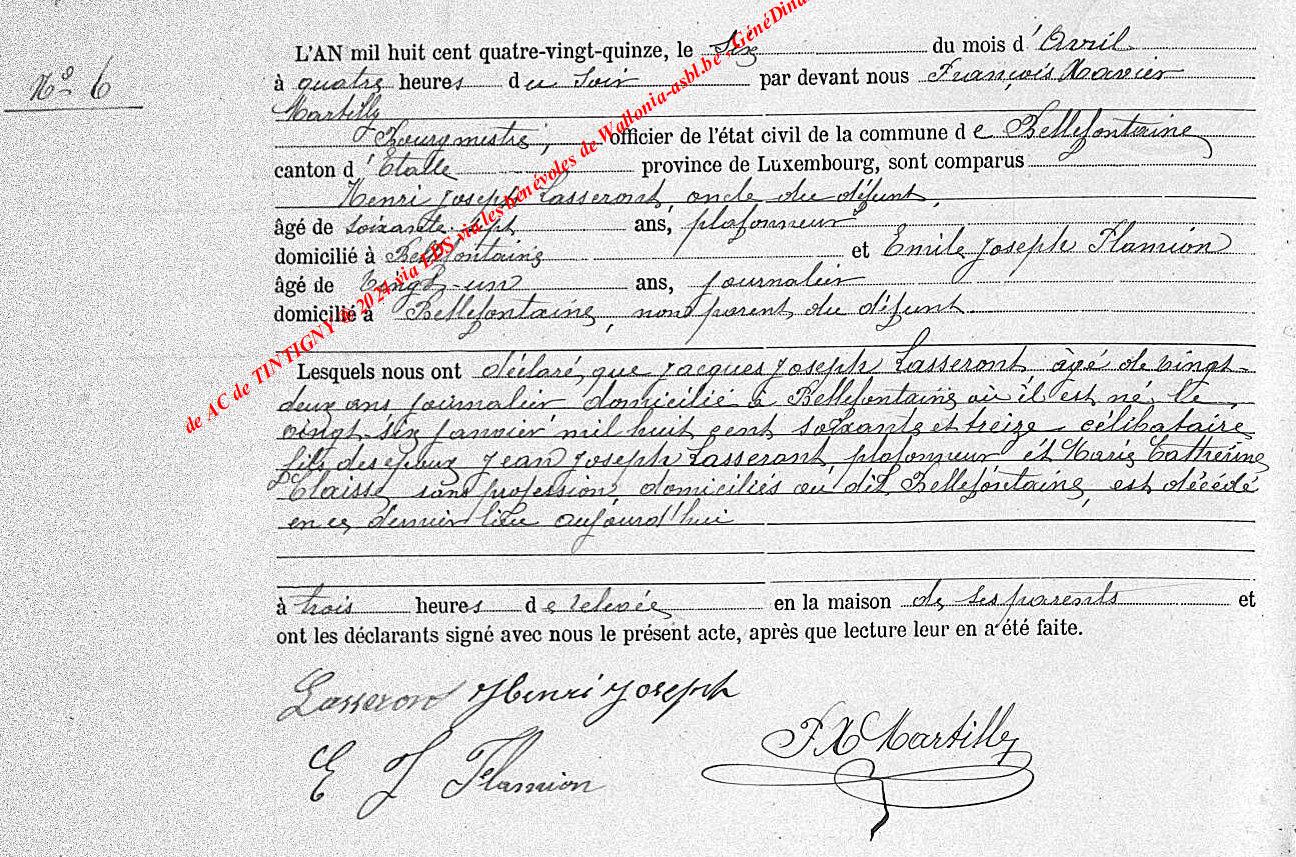 L'AN mil huit cent quatre-vingt-quinze, le Six du mois d'Avril
N° 6
à quatre heures du soir par devant nous François Xavier
Martilly
Bourgmestre, officier de l'état civil de la commune de Bellefontaine
canton d'Etalle province de Luxembourg, sont comparus
Henri Joseph Lasseront, oncle du défunt,
âgé de soixante-sept ans, plafonneur
domicilié à Bellefontaine et Emile Joseph Flamion
âgé de vingt-un ans, journalier
domicilié à Bellefontaine, non parent du défunt
Lesquels nous ont déclaré, que Jacques Joseph Lasseront âgé de vingt-
deux ans journalier domicilié à Bellefontaine où il est né le
vingt-six janvier mil huit cent soixante et treize célibataire
fils des époux Jean Joseph Lasseront, plafonneur et Marie Catherine
Claisse, sans profession, domiciliés au dit Bellefontaine, est décédé
en ce dernier lieu aujourd'hui
à trois heures de relevée en la maison de ses parents et
ont les déclarants signé avec nous le présent acte, après que lecture leur en a été faite.
Lasseront Henri Joseph
F X Martilly
E J Flamion
de AC de TINTIGNY @ 2024 via LDS via les bénévoles de Wallonia-asbl.be -GénéDina